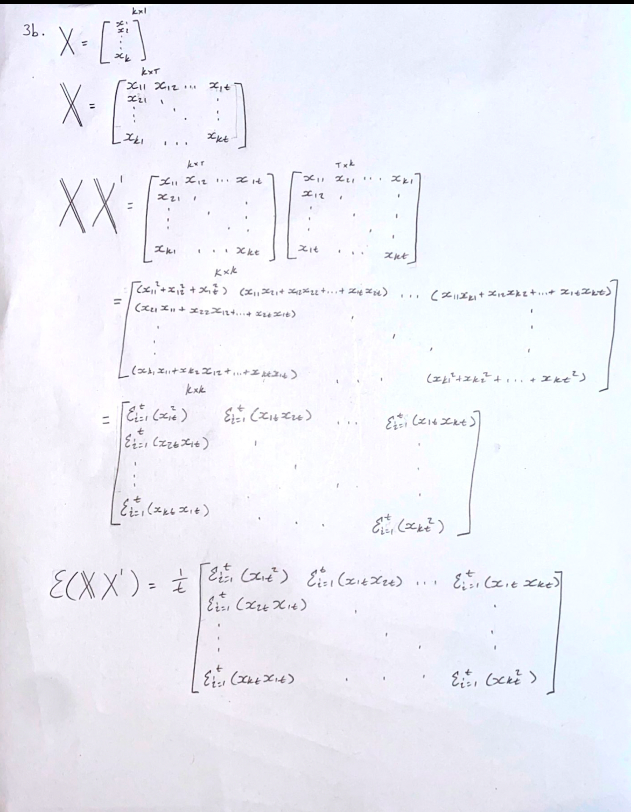 k×1
3b. X = [ x₁
x₂
⋮
x_k ]
k×T
𝕏 = [ x₁₁ x₁₂ ... x₁t
x₂₁ . . .
⋮
x_k1 ... x_kt ]
k×T T×k
𝕏𝕏' = [ x₁₁ x₁₂ ... x₁t ] [ x₁₁ x₂₁ ... x_k1 ]
x₂₁ x₁₂
⋮
x_k1 ... x_kt x₁t ... x_kt
k×k
= [ (x₁₁² + x₁₂² + x₁t²) (x₁₁x₂₁ + x₁₂x₂₂ + ... + x₁t x₂t) ... (x₁₁x_k1 + x₁₂x_k2 + ... + x₁t x_kt) ]
(x₂₁x₁₁ + x₂₂x₁₂ + ... + x₂t x₁t)
⋮
(x_k1 x₁₁ + x_k2 x₁₂ + ... + x_kt x₁t) . . . (x_k1² + x_k2² + ... + x_kt²)
k×k
= [ Σᵢ₌₁ᵗ (x₁t²) Σᵢ₌₁ᵗ (x₁t x₂t) ... Σᵢ₌₁ᵗ (x₁t x_kt) ]
Σᵢ₌₁ᵗ (x₂t x₁t)
⋮
Σᵢ₌₁ᵗ (x_kt x₁t) . . . Σᵢ₌₁ᵗ (x_kt²)
Ɛ(𝕏𝕏') = 1/t [ Σᵢ₌₁ᵗ (x₁t²) Σᵢ₌₁ᵗ (x₁t x₂t) ... Σᵢ₌₁ᵗ (x₁t x_kt) ]
Σᵢ₌₁ᵗ (x₂t x₁t)
⋮
Σᵢ₌₁ᵗ (x_kt x₁t) . . . Σᵢ₌₁ᵗ (x_kt²)